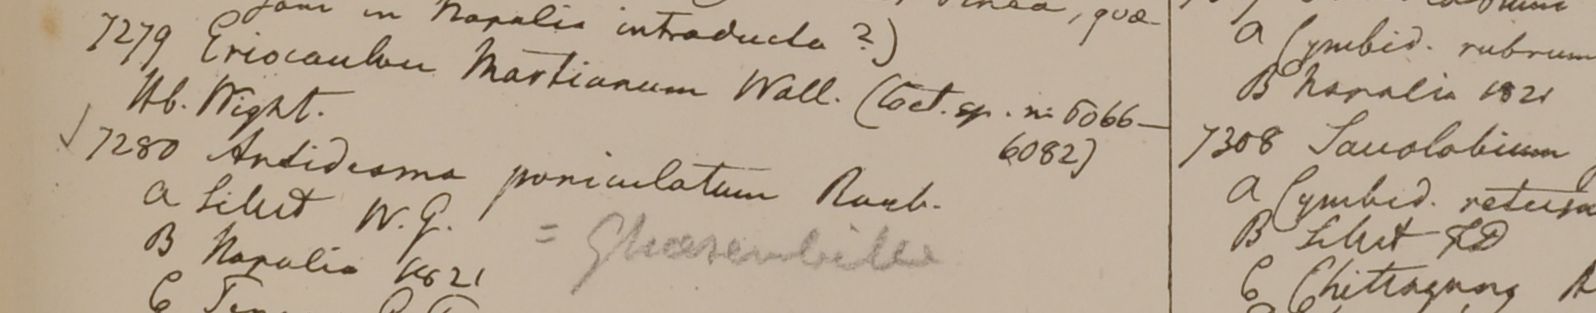 jam in Napalia introducta ?)
7279 Eriocaulon Martianum Wall. (Cet. sp. n: 6066–
6082)
Hb. Wight.
7280 Antidesma paniculatum Roxb.
a Silhet W.G.
B Napalia 1821
= Ghaesembilla
C
a Cymbid. rubrum
B Napalia 1821
7308 Saccolabium
a Cymbid. retusa
B Silhet FD
C Chittagong